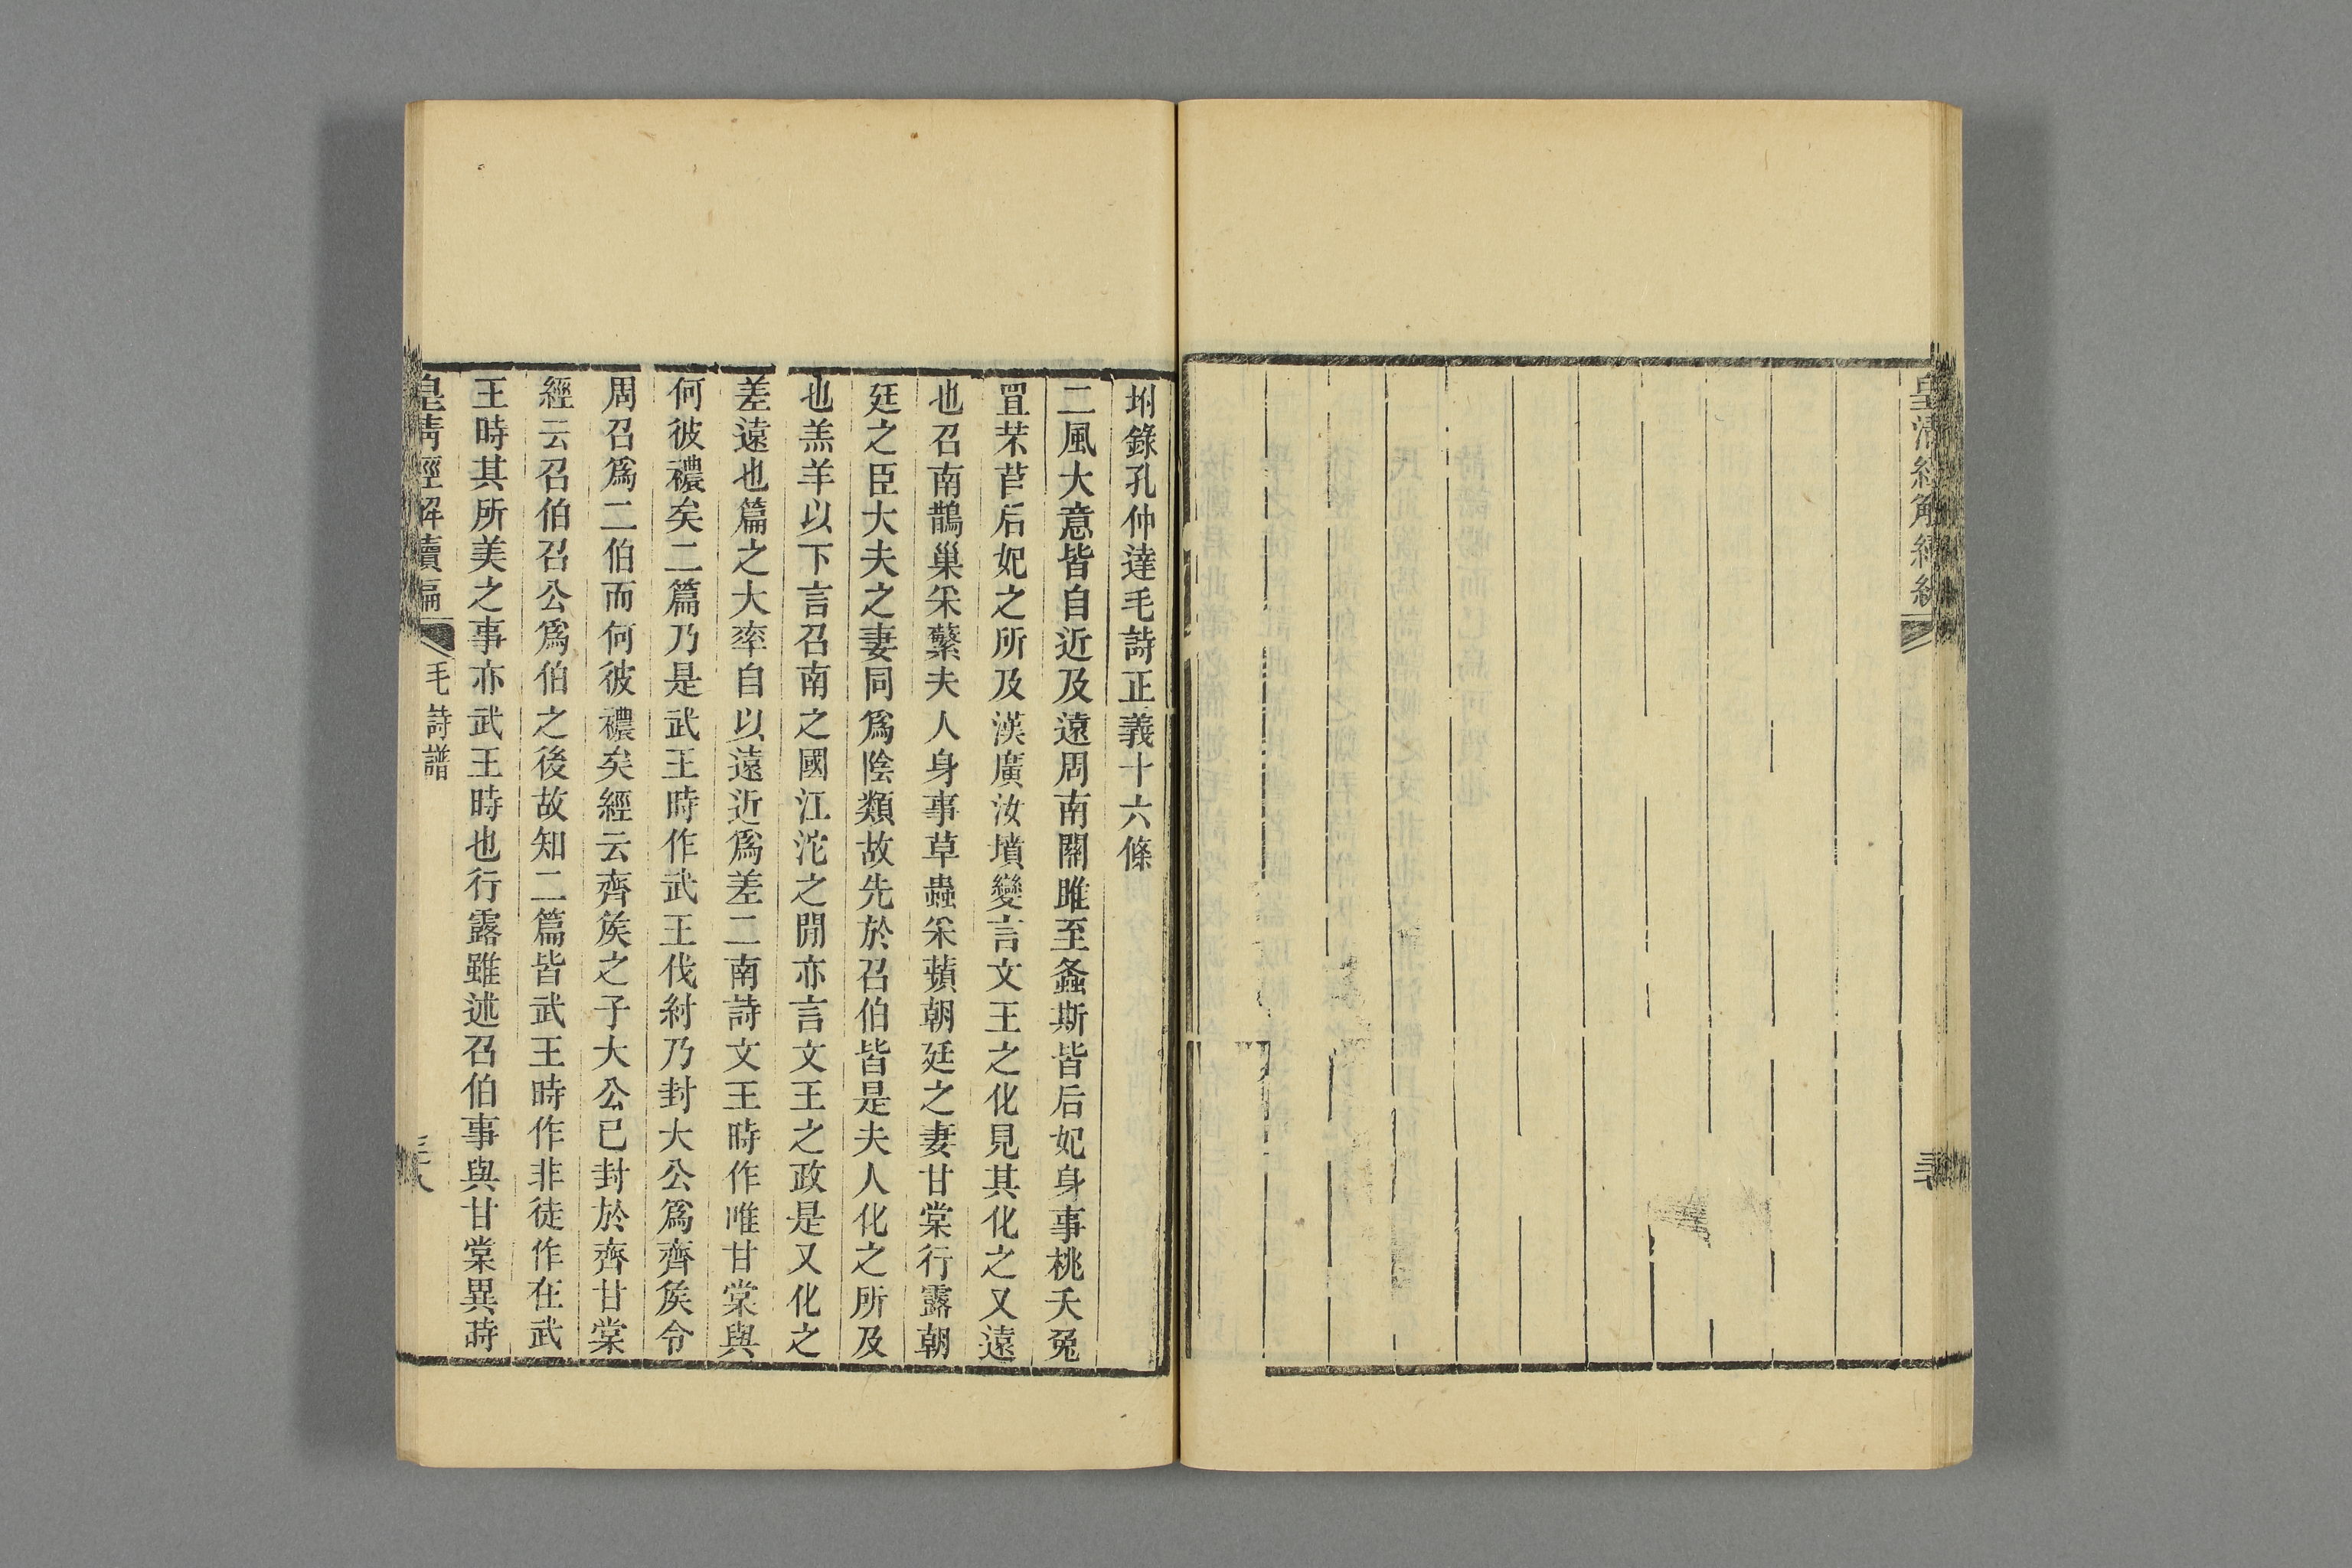 皇清經解續編
坿錄孔仲達毛詩正義十六條
二風大意皆自近及遠周南關雎至螽斯皆后妃身事桃夭兔
罝芣苢后妃之所及漢廣汝墳變言文王之化見其化之又遠
也召南鵲巢采蘩夫人身事草蟲采蘋朝廷之妻甘棠行露朝
廷之臣大夫之妻同爲陰類故先於召伯皆是夫人化之所及
也羔羊以下言召南之國江沱之閒亦言文王之政是又化之
差遠也篇之大率自以遠近爲差二南詩文王時作唯甘棠與
何彼襛矣二篇乃是武王時作武王伐紂乃封大公爲齊矦令
周召爲二伯而何彼襛矣經云齊矦之子大公已封於齊甘棠
經云召伯召公爲伯之後故知二篇皆武王時作非徒作在武
王時其所美之事亦武王時也行露雖述召伯事與甘棠異時
皇清經解續編
毛詩譜